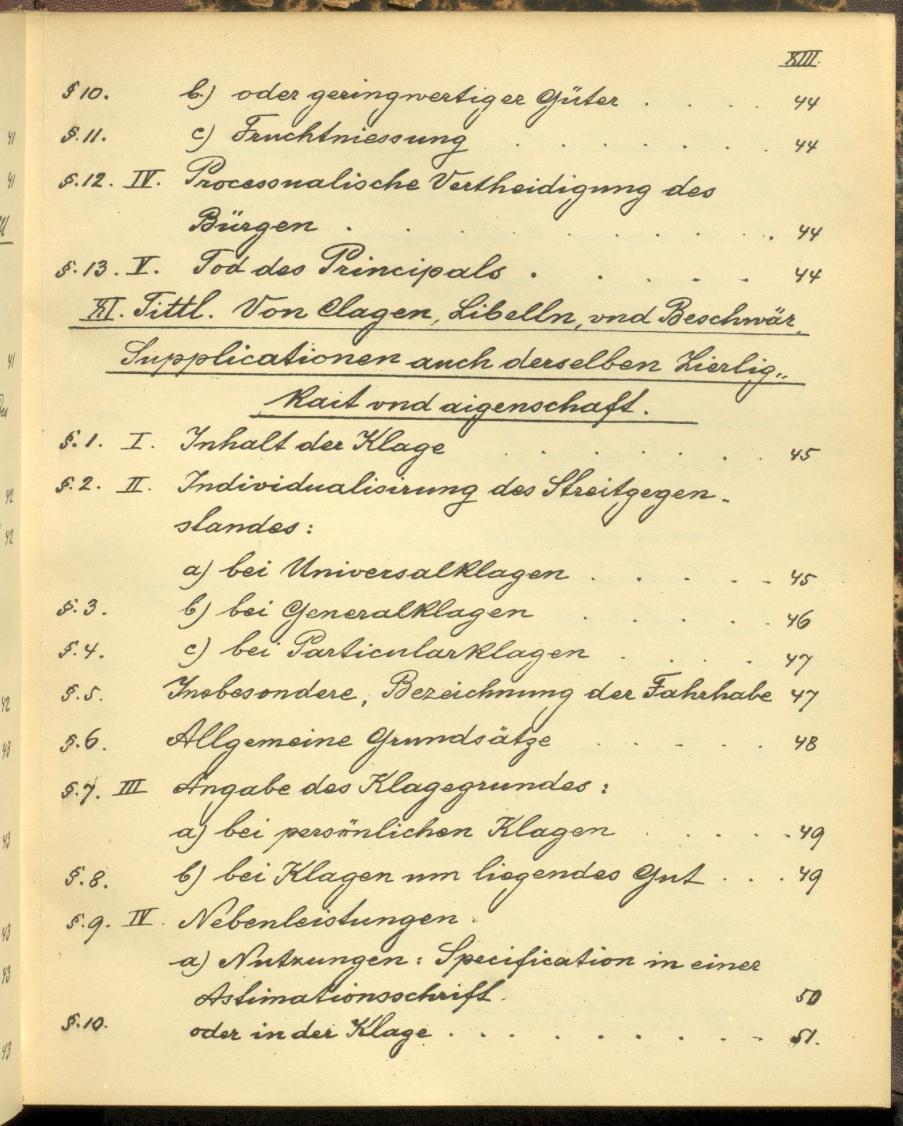 XIII.
§ 10. b.) oder geringwertiger Güter . . . . 44
§. 11. c) Fruchtniessung . . . . . . . 44
§. 12. IV. Processualische Vertheidigung des
Bürgen . . . . . . . . . . 44
§. 13. V. Tod des Principals . . . . . 44
XI. Tittl. Von Clagen, Libelln, vnd Beschwär,
Supplicationen auch derselben Zierlig„
kait vnd aigenschaft.
§. 1. I. Inhalt der Klage . . . . . . . 45
§. 2. II. Individualisirung des Streitgegen-
standes:
a) bei Universalklagen . . . . . 45
§. 3. b) bei Generalklagen . . . . . 46
§. 4. c) bei Particularklagen . . . . 47
§. 5. Insbesondere, Bezeichnung der Fahrhabe 47
§. 6. Allgemeine Grundsätze . . . . . 48
§. 7. III Angabe des Klagegrundes:
a) bei persönlichen Klagen . . . . . 49
§. 8. b) bei Klagen um liegendes Gut . . . 49
§. 9. IV. Nebenleistungen.
a) Nutzungen: Specification in einer
Ästimationsschrift. 50
§. 10. oder in der Klage . . . . . . . . . 51.
41
41
41
42
42
42
43
43
43
43
43